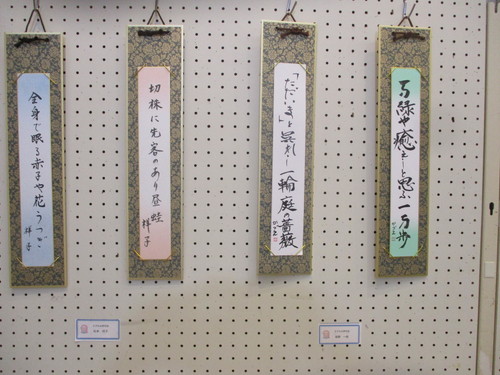 全身で眠る赤子や花うつぎ
祥子
切株に先客のあり昼蛙
祥子
「ただいま」と
一輪庭の薔薇
万緑や癒えしと思ふ一万歩